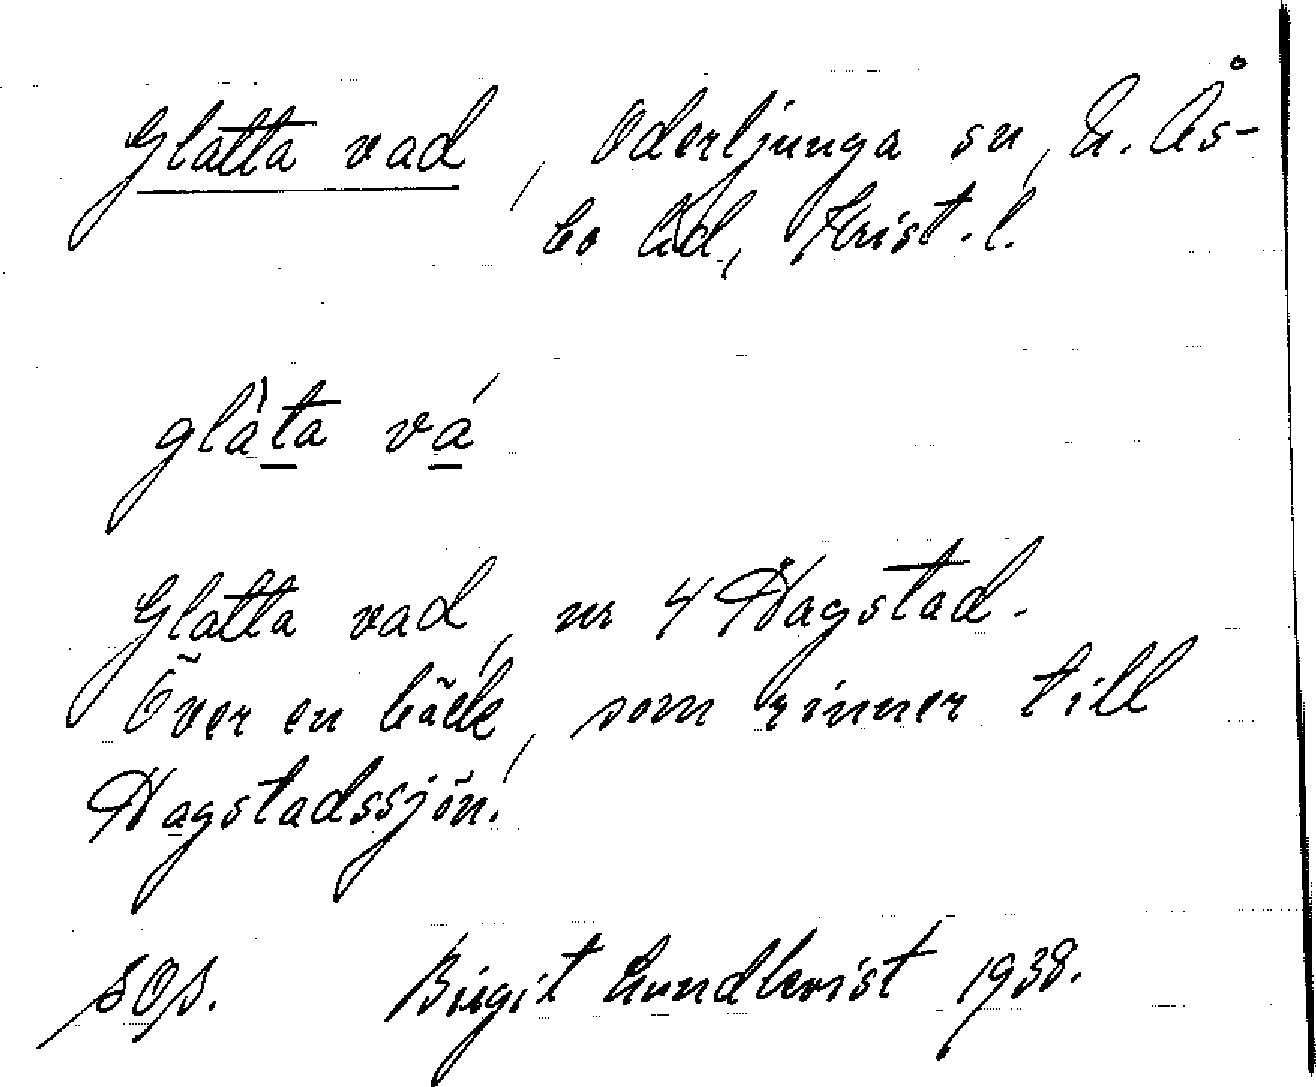 Glatta vad, Oderljunga sn, N. Ås-
bo hd, Krist. l.
gláta vá
Glatta vad, nr 4 Hagstad.
Över en bäck, som rinner till
Hagstadssjön.
Birgit Lundkvist 1938.